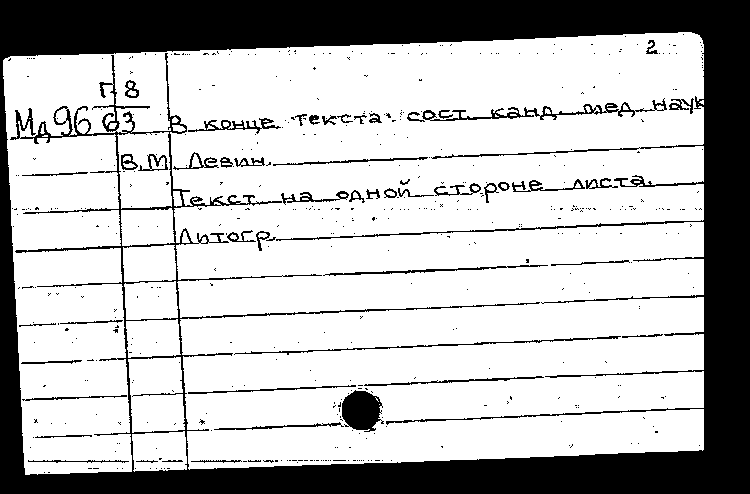 2
Г-8
Мд96 63 В конце текста: сост. канд. мед. наук
В.М. Левин.
Текст на одной стороне листа.
Литогр.